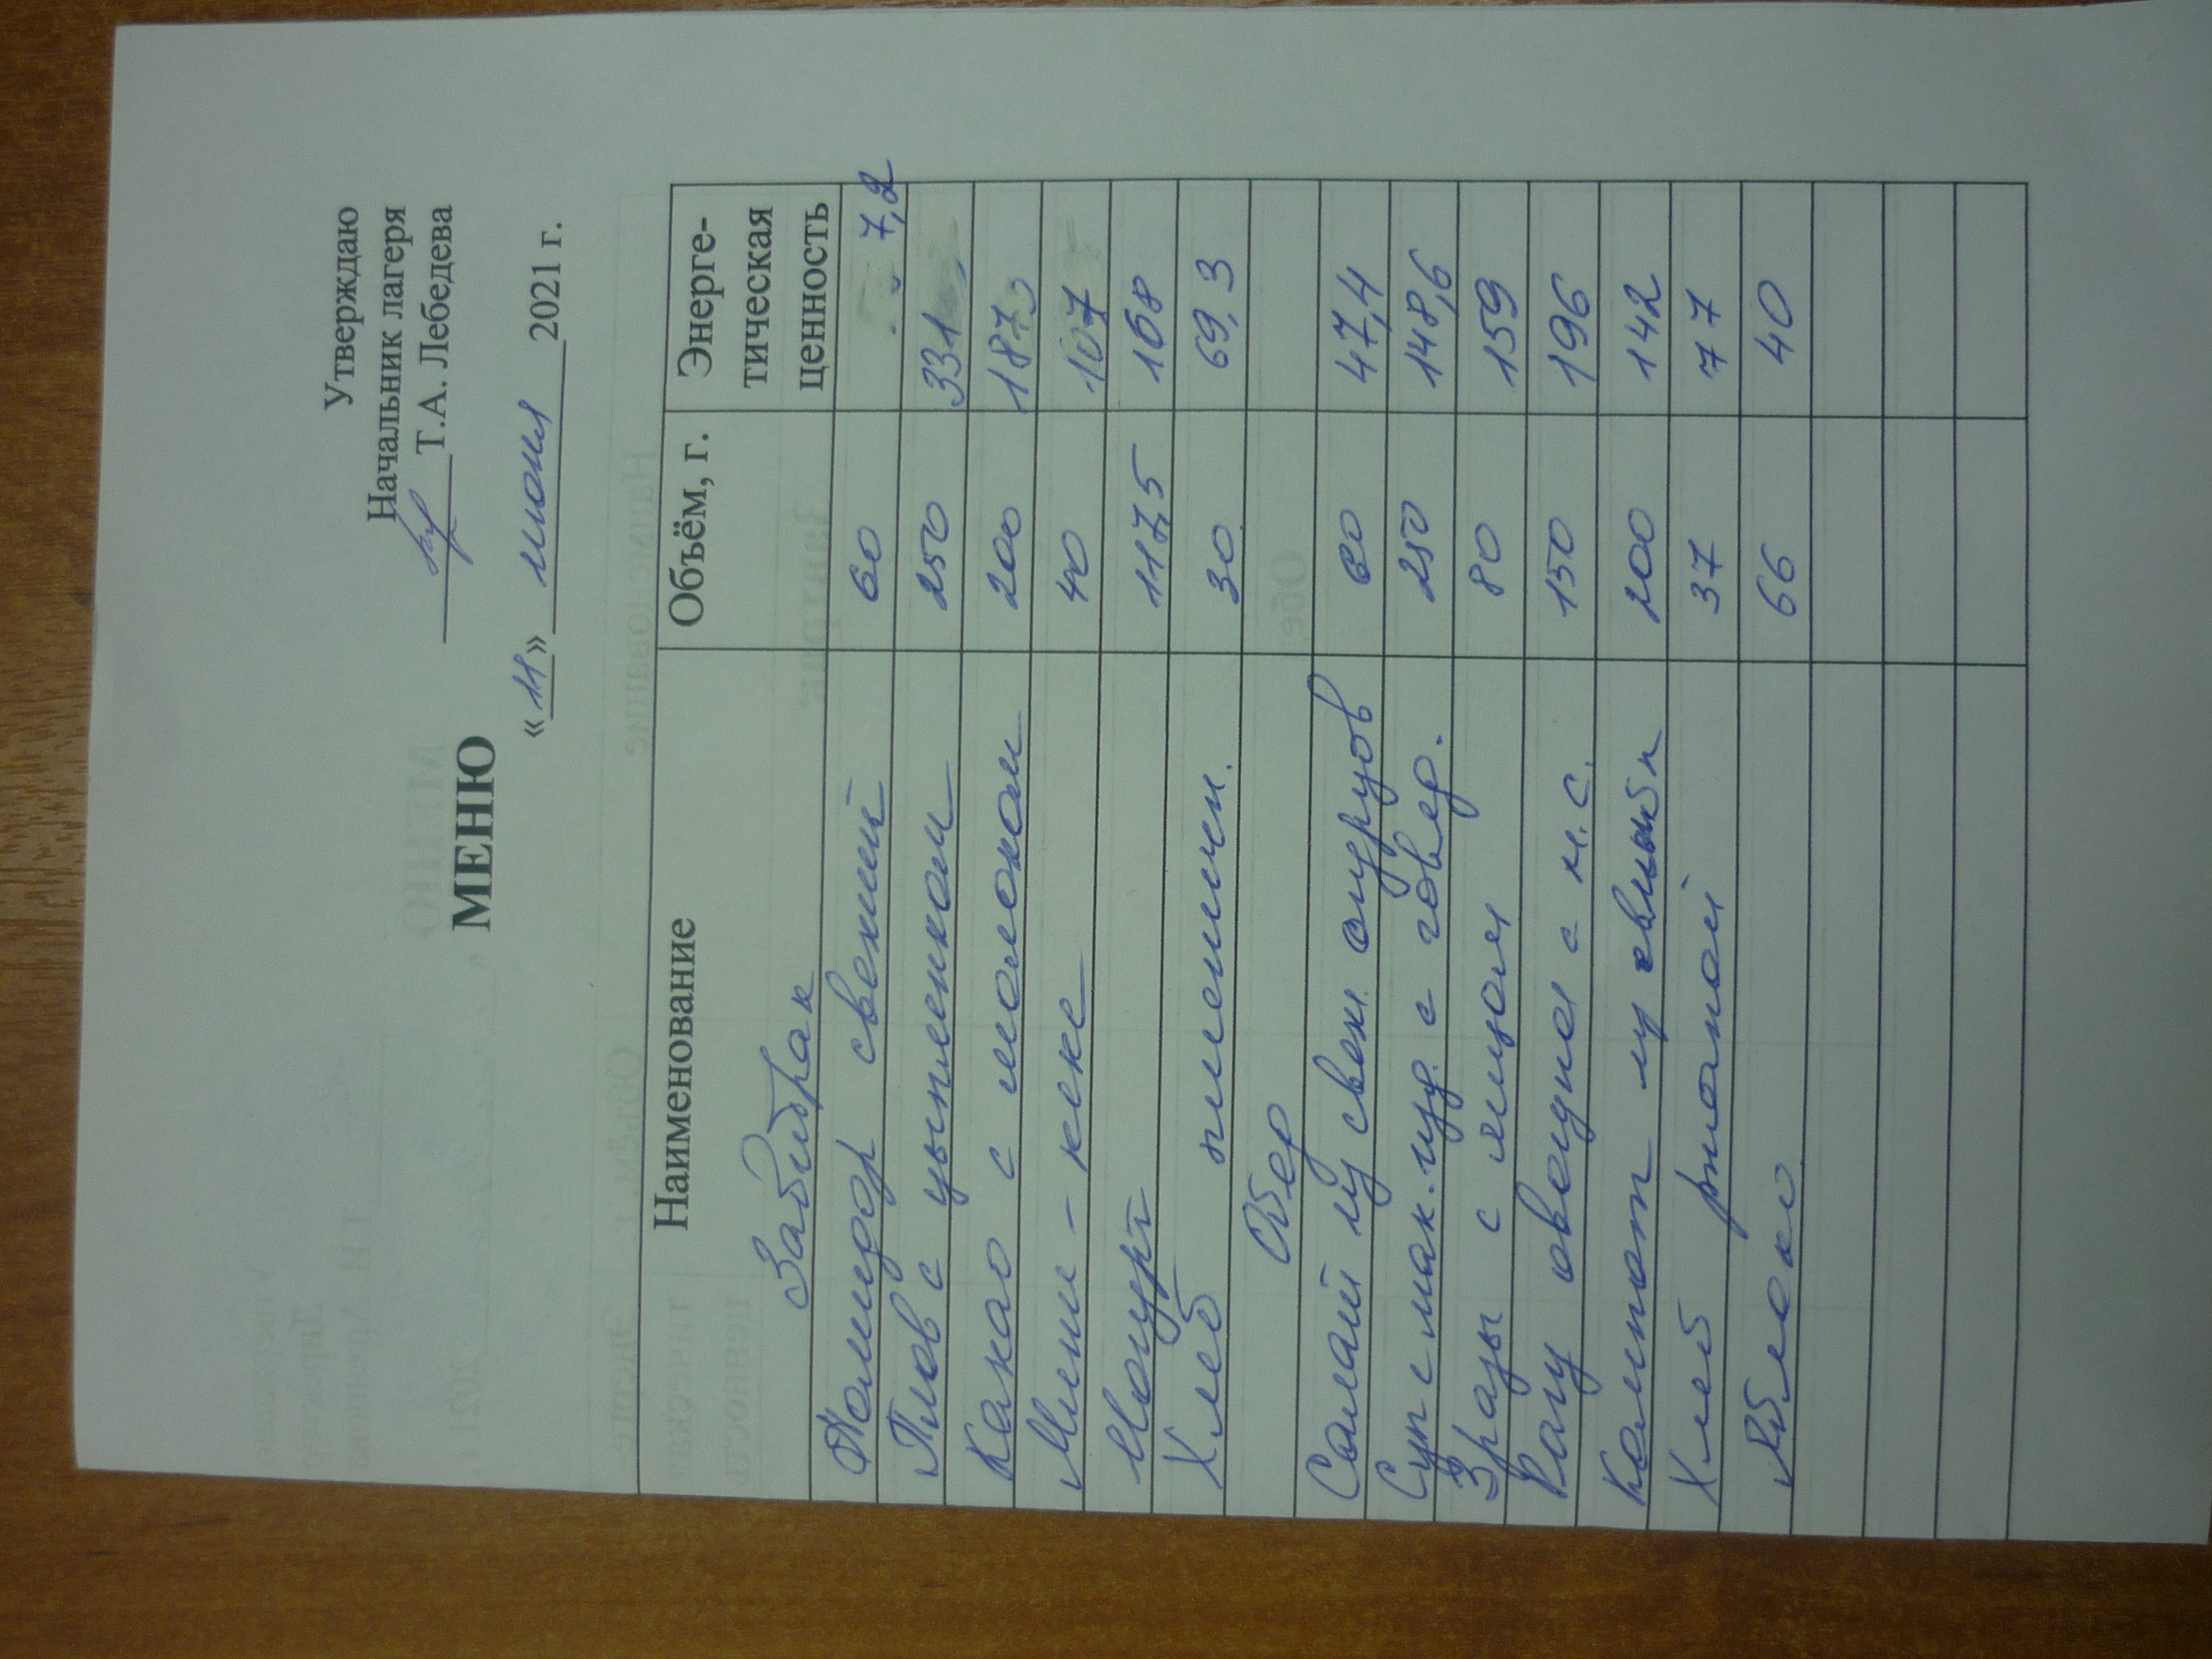 Утверждаю
Начальник лагеря
Т.А. Лебедева
МЕНЮ
«11» июня 2021 г.
Наименование Объём, г. Энерге-тическая ценность
Завтрак
Помидор свежий 60 7,2
Плов с цыпленком 250 331
Какао с молоком 200 187
Мини-кекс 40 107
Йогурт 117,5 168
Хлеб пшеничн. 30 69,3
Обед
Салат из свеж. огурцов 60 47,4
Суп с мак.изд. с говяд. 250 148,6
Зразы с яйцом 80 159
Рагу овощное с м.с. 150 196
Компот из 200 142
Хлеб ржаной 37 77
Яблоко 66 40